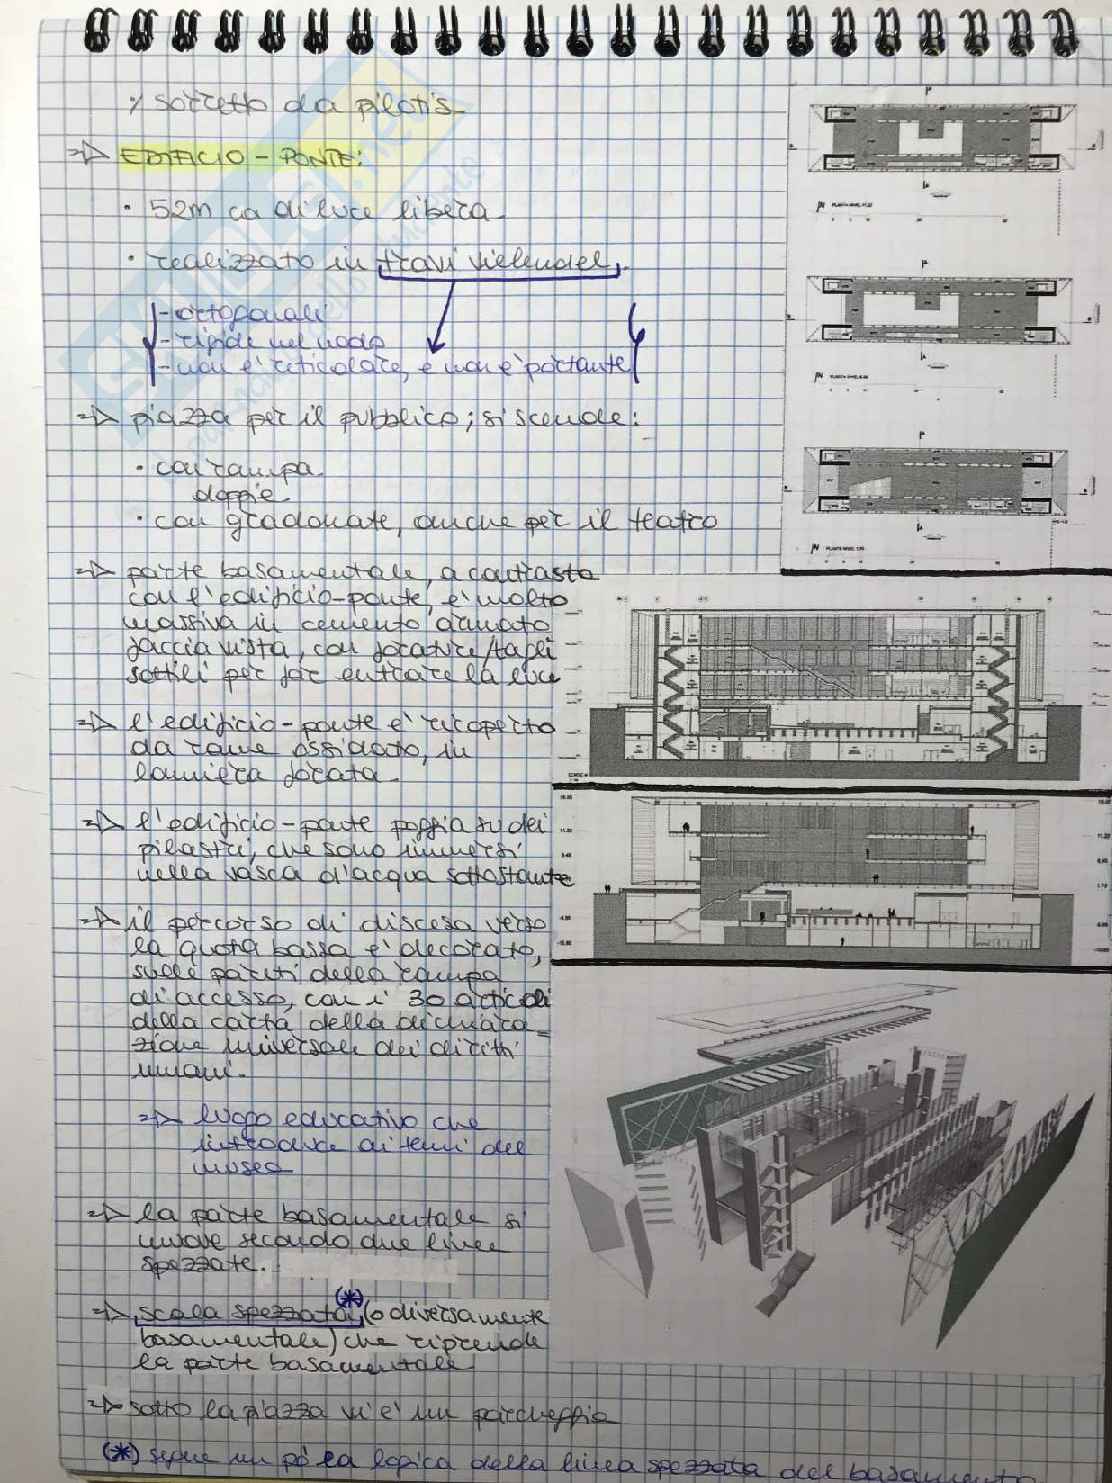 •/ sorretto da pilotis.
=> EDIFICIO - PONTE:
• 52m ca di luce libera.
• realizzato in travi vielendel.
- ortogonali
- rigide nel nodo
- non è reticolare, e non è portante
=> piazza per il pubblico; si scende:
• con rampa
doppie.
• con gradonate, anche per il teatro
=> parte basamentale, a contrasto
con l'edificio-ponte, è molto
massiva in cemento armato
faccia vista, con forature/tagli
sottili per far entrare la luce
=> l'edificio-ponte è ricoperto
da rame ossidato, in
lamiera forata.
=> l'edificio-ponte poggia su dei
pilastri, che sono immersi
nella vasca d'acqua sottostante
=> il percorso di discesa verso
la quota bassa è decorato,
sulle pareti della rampa
di accesso, con i 30 articoli
della carta della dichiara=
zione universale dei diritti
umani.
=> luogo educativo che
introduce ai temi del
museo
=> la parte basamentale si
muove secondo due linee
spezzate.
=> scala spezzata (*) (o diversamente
basamentale) che riprende
la parte basamentale
=> sotto la piazza vi è un parcheggio
(*) segue un pò la logica della linea spezzata del basamento